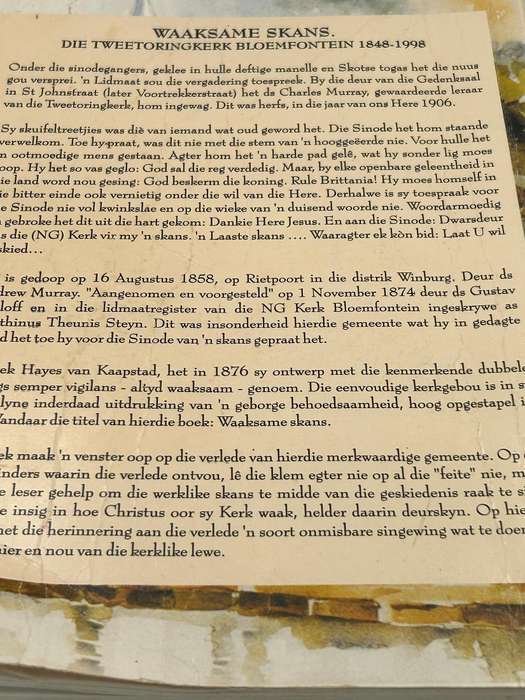 WAAKSAME SKANS.
DIE TWEETORINGKERK BLOEMFONTEIN 1848-1998
Onder die sinodegangers, geklee in hulle deftige manelle en Skotse togas het die nuus
gou versprei. 'n Lidmaat sou die vergadering toespreek. By die deur van die Gedenksaal
in St Johnstraat (later Voortrekkerstraat) het ds Charles Murray, gewaardeerde leraar
van die Tweetoringkerk, hom ingewag. Dit was herfs, in die jaar van ons Here 1906.
Sy skuifeltreetjies was dié van iemand wat oud geword het. Die Sinode het hom staande
verwelkom. Toe hy praat, was dit nie met die stem van 'n hooggeëerde nie. Voor hulle het
'n ootmoedige mens gestaan. Agter hom het 'n harde pad gelê, wat hy sonder lig moes
loop. Hy het so vas geglo: God sal die reg verdedig. Maar, by elke openbare geleentheid in
die land word nou gesing: God beskerm die koning. Rule Brittania! Hy moes homself in
die bitter einde ook vernietig onder die wil van die Here. Derhalwe is sy toespraak voor
e Sinode nie vol kwinkslae en op die wieke van 'n duisend woorde nie. Woordarmoedig
n gebroke het dit uit die hart gekom: Dankie Here Jesus. En aan die Sinode: Dwarsdeur
s die (NG) Kerk vir my 'n skans. 'n Laaste skans .... Waaragter ek kòn bid: Laat U wil
skied...
is gedoop op 16 Augustus 1858, op Rietpoort in die distrik Winburg. Deur ds
drew Murray. "Aangenomen en voorgesteld" op 1 November 1874 deur ds Gustav
loff en in die lidmaatregister van die NG Kerk Bloemfontein ingeskrywe as
thinus Theunis Steyn. Dit was insonderheid hierdie gemeente wat hy in gedagte
d het toe hy voor die Sinode van 'n skans gepraat het.
ek Hayes van Kaapstad, het in 1876 sy ontwerp met die kenmerkende dubbele
gs semper vigilans - altyd waaksaam - genoem. Die eenvoudige kerkgebou is in s
lyne inderdaad uitdrukking van 'n geborge behoedsaamheid, hoog opgestapel i
Vandaar die titel van hierdie boek: Waaksame skans.
ek maak 'n venster oop op die verlede van hierdie merkwaardige gemeente. Op
inders waarin die verlede ontvou, lê die klem egter nie op al die "feite" nie, m
e leser gehelp om die werklike skans te midde van die geskiedenis raak te s
e insig in hoe Christus oor sy Kerk waak, helder daarin deurskyn. Op hie
met die herinnering aan die verlede 'n soort onmisbare singewing wat te doen
hier en nou van die kerklike lewe.